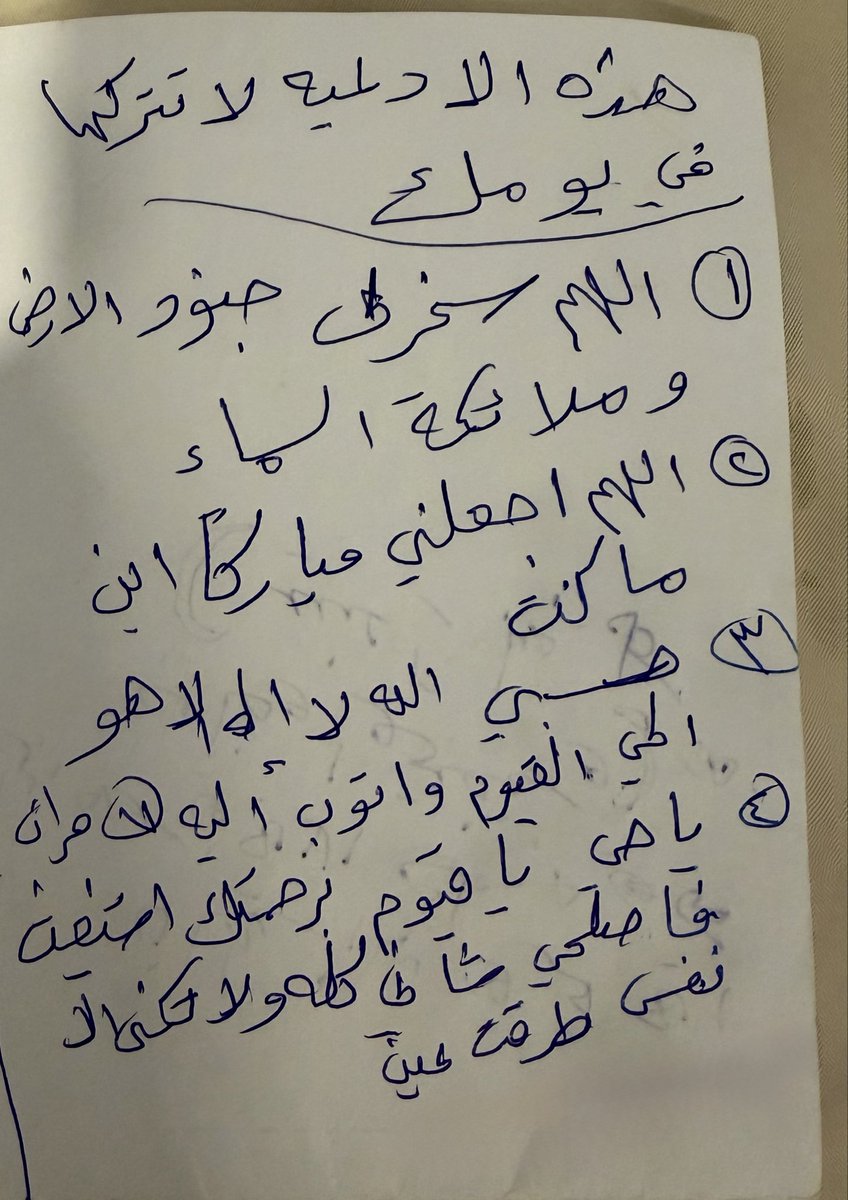 هذه الادعيه لا تتركها
في يومك
① اللهم سخر لي جنود الارض
وملائكة السماء
② اللهم اجعلني مباركاً اين
ما كنت
③ حسبي الله لا إله إلا هو
الحي القيوم واتوب أليه ⑦ مرات
④ ياحي ياقيوم برحمتك استغيث
فاصلحي شأني كله ولا تكلني الا
نفسي طرفت عين